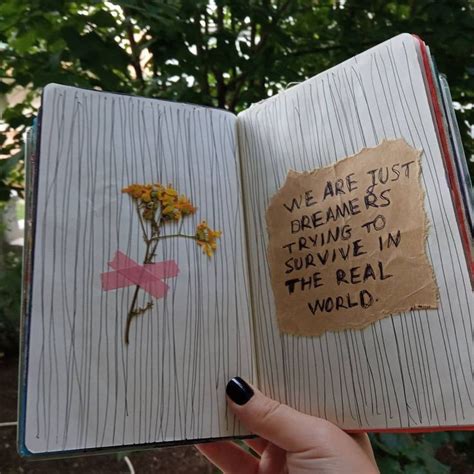 WE ARE JUST
DREAMERS
TRYING TO
SURVIVE IN
THE REAL
WORLD.